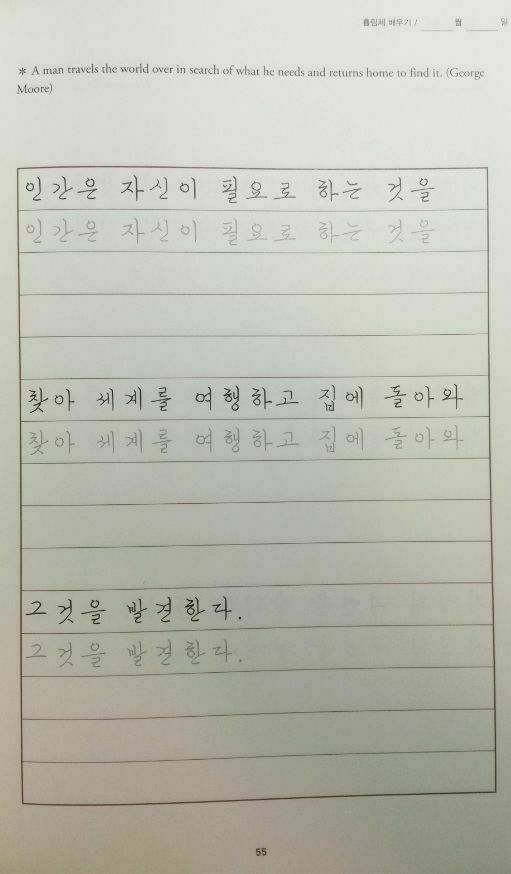 흘림체 배우기 / 월 일
* A man travels the world over in search of what he needs and returns home to find it. (George
Moore)
인간은 자신이 필요로 하는 것을
인간은 자신이 필요로 하는 것을
찾아 세계를 여행하고 집에 돌아와
찾아 세계를 여행하고 집에 돌아와
그것을 발견한다.
그것을 발견한다.
55